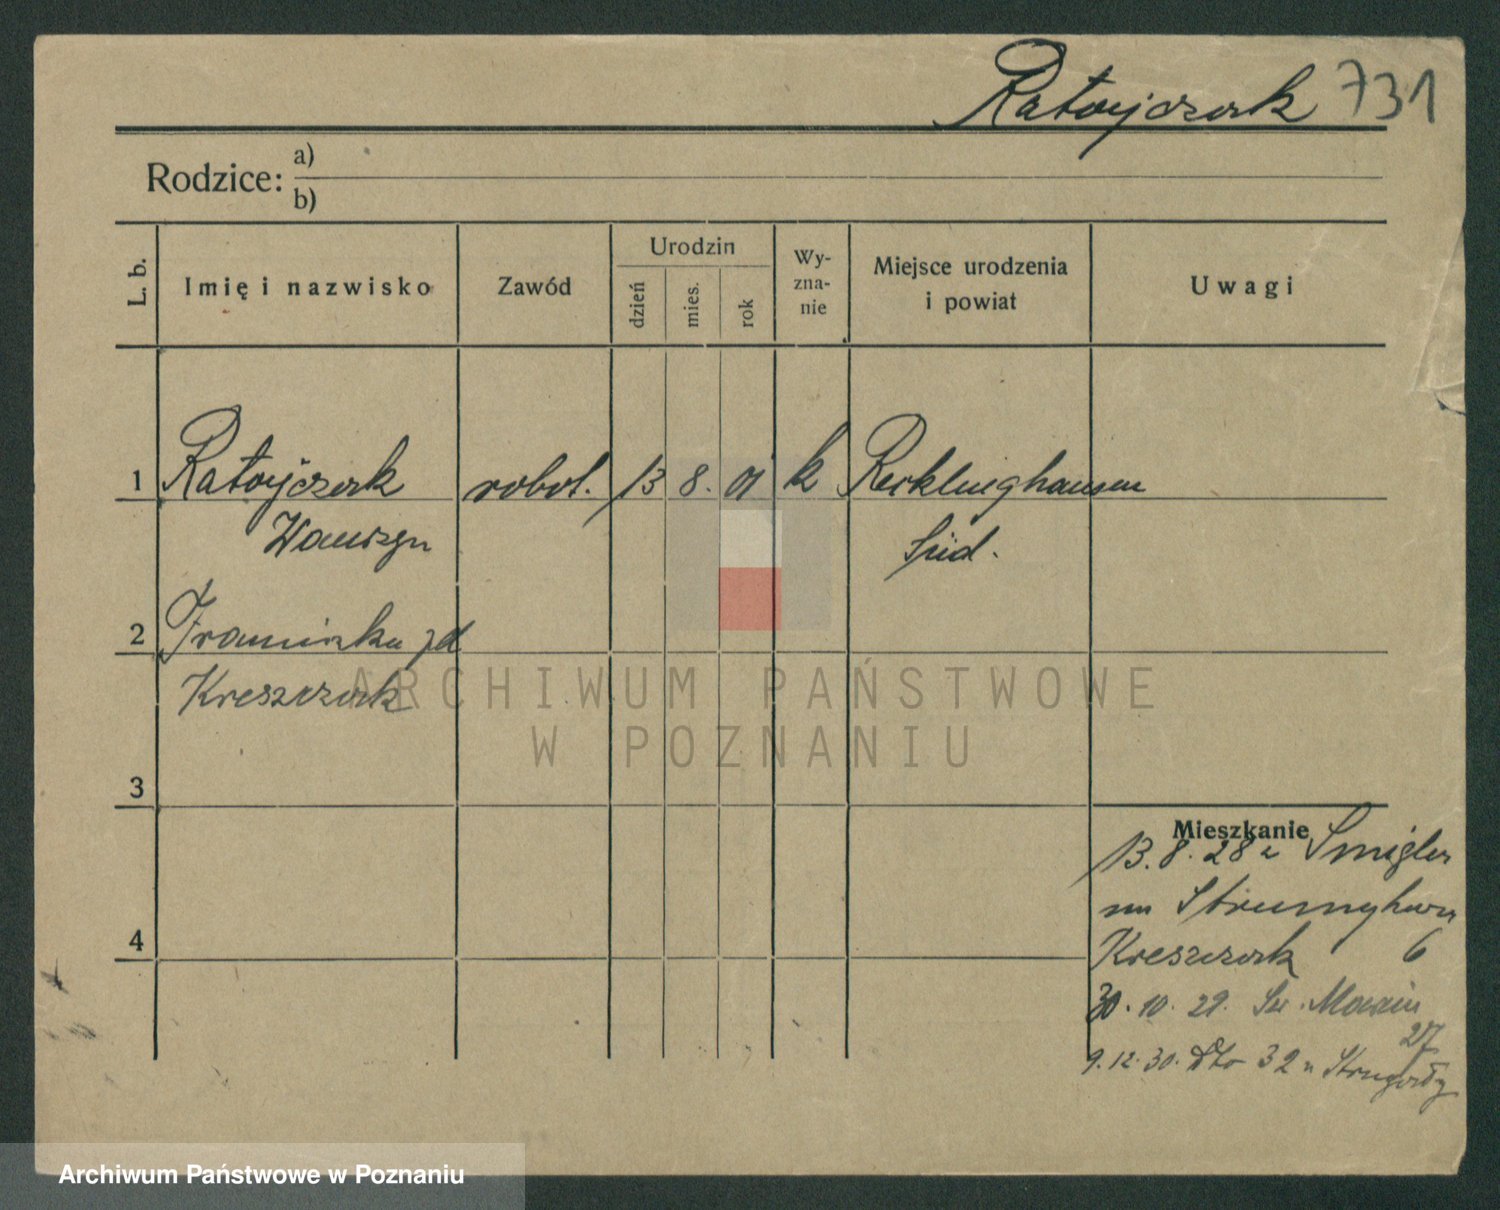 Ratajczak 731
Rodzice: a)
b)
L. b.
Imię i nazwisko
Zawód
Urodzin
dzień
mies.
rok
Wy-
zna-
nie
Miejsce urodzenia
i powiat
Uwagi
1 Ratajczak robot. 13 8. 01 k Recklinghausen
Wawrzyn Süd.
2 Franciszka zd
Kreszczak
3
4
Mieszkanie
13.8.28 z Śmigla
na
Kreszczak 6
30.10.29. Św. Marcin
27
9.12.30. Dto 32 u
ARCHIWUM PAŃSTWOWE
W POZNANIU
Archiwum Państwowe w Poznaniu